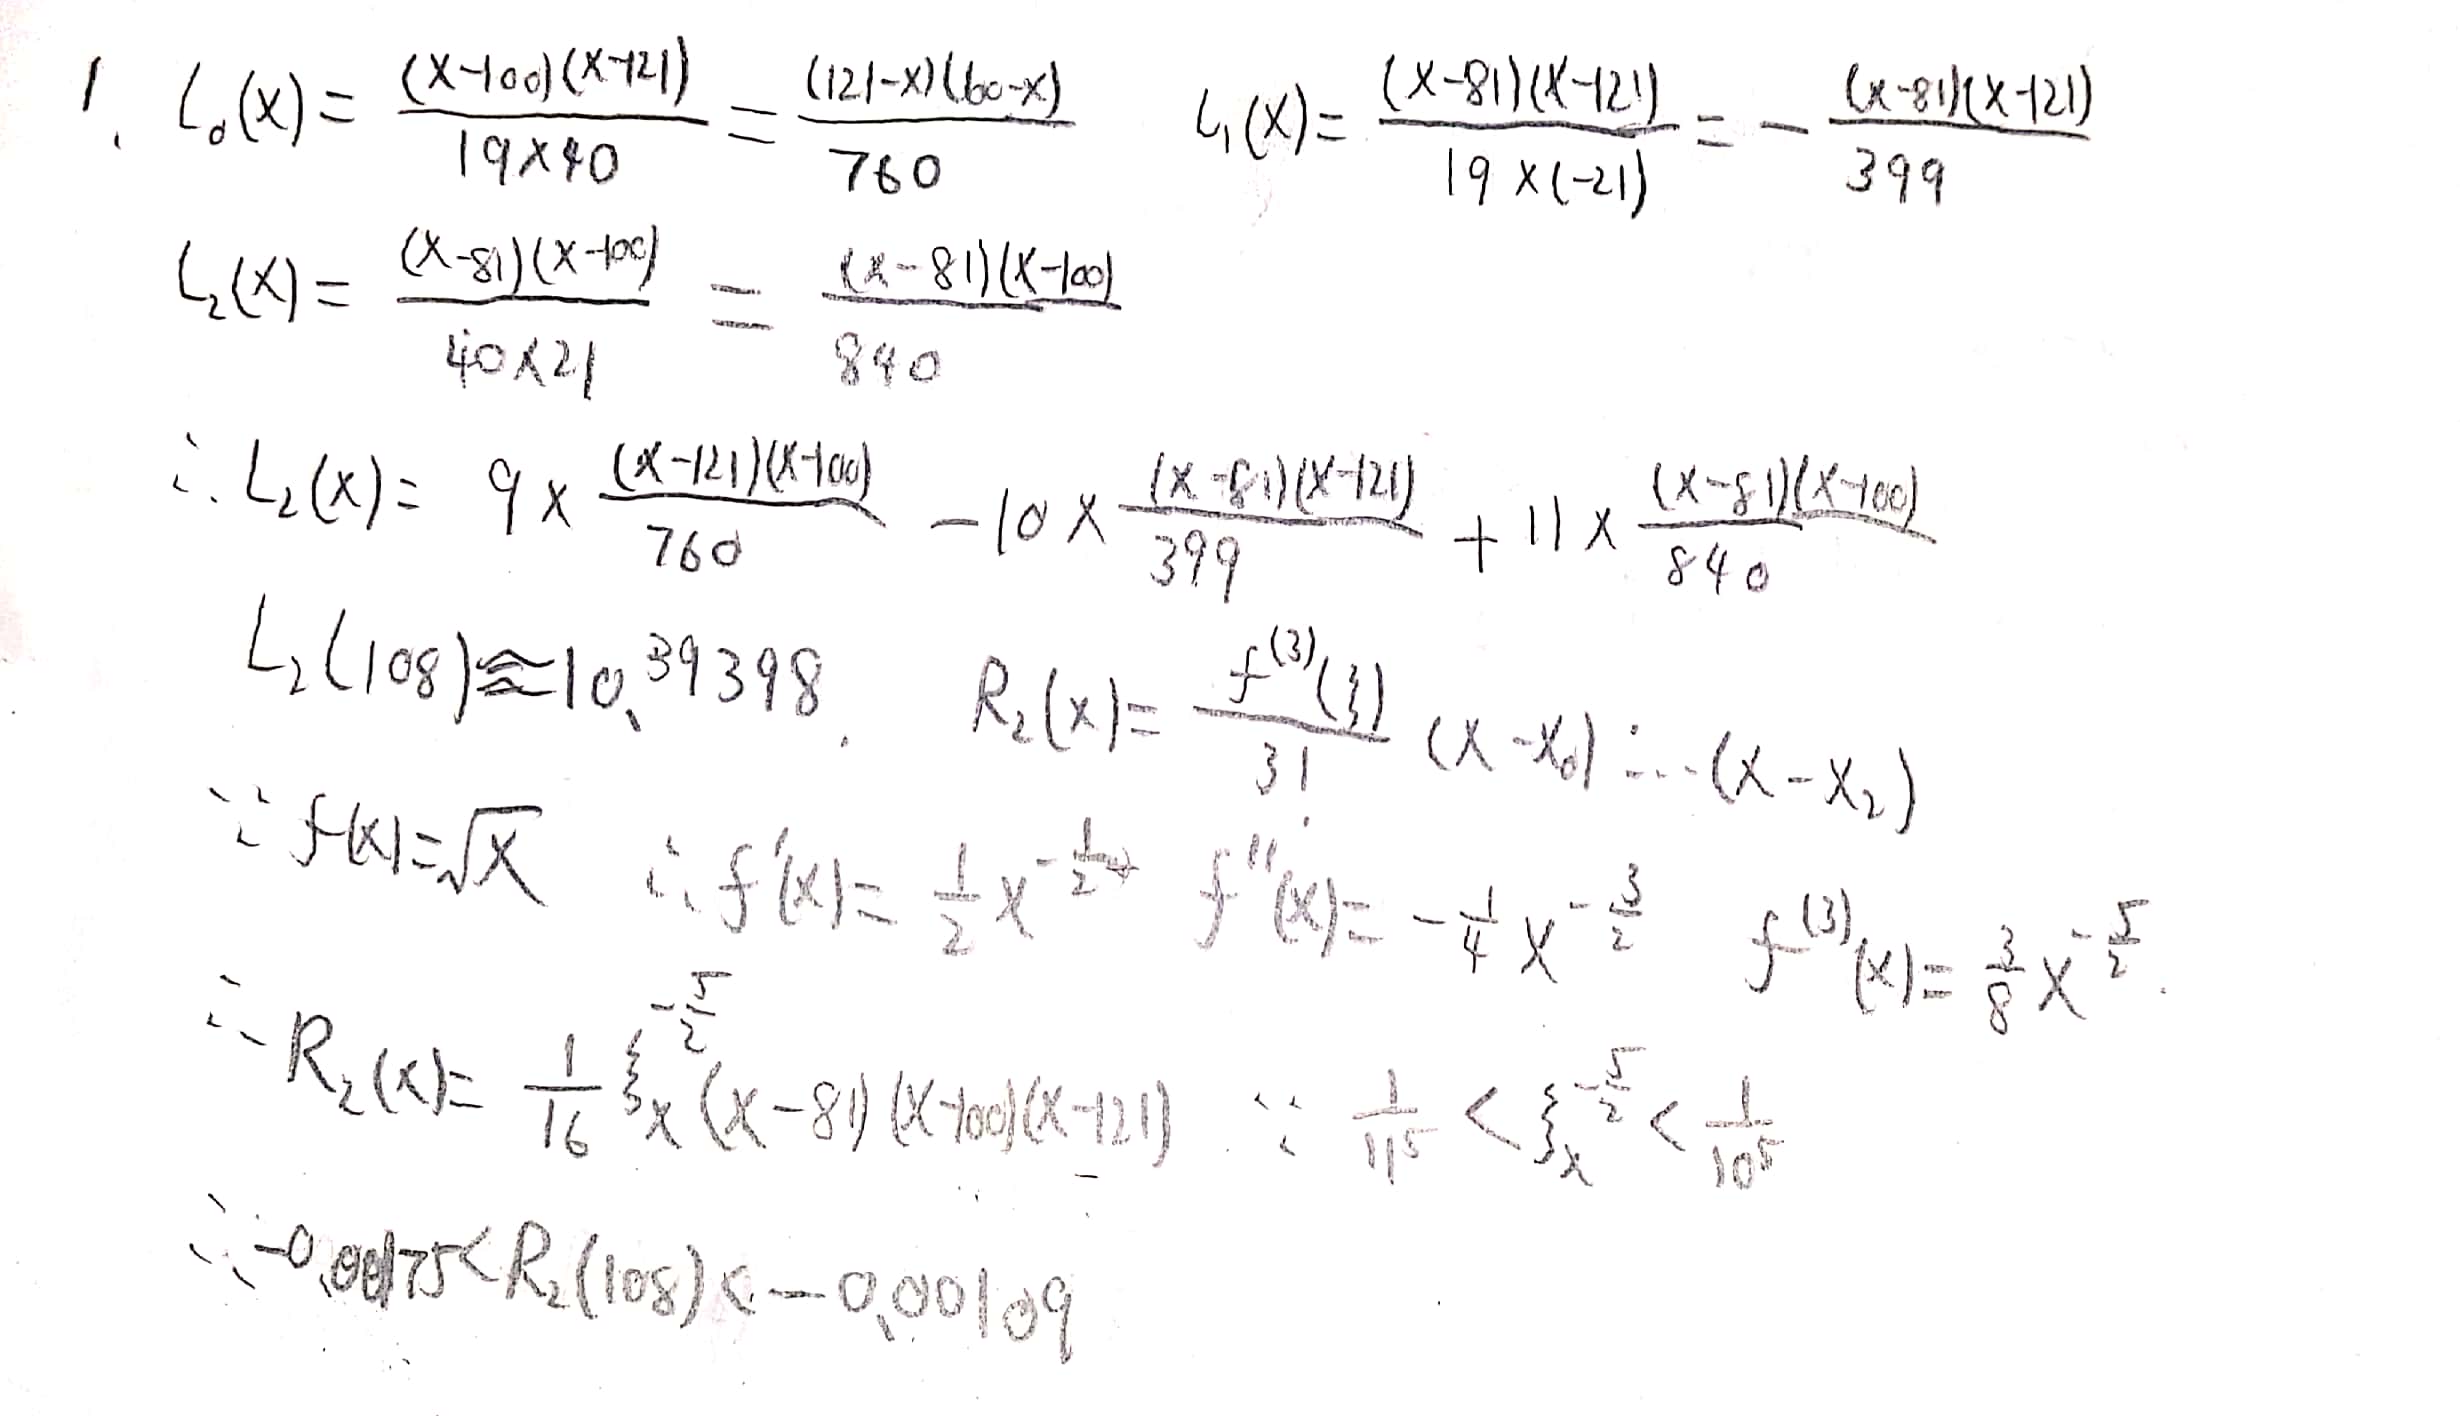 1. L₀(x) = (x-100)(x-121) / 19×40 = (121-x)(100-x) / 760 L₁(x) = (x-81)(x-121) / 19×(-21) = - (x-81)(x-121) / 399
L₂(x) = (x-81)(x-100) / 40×21 = (x-81)(x-100) / 840
∴ L₂(x) = 9× (x-121)(x-100) / 760 - 10× (x-81)(x-121) / 399 + 11× (x-81)(x-100) / 840
L₂(108) ≈ 10.39398. R₂(x) = f⁽³⁾(ξ) / 3! (x-x₀)···(x-x₂)
∵ f(x) = √x ∴ f'(x) = 1/2 x^(-1/2) f''(x) = -1/4 x^(-3/2) f⁽³⁾(x) = 3/8 x^(-5/2).
∴ R₂(x) = 1/16 ξₓ^(-5/2) (x-81)(x-100)(x-121) ∵ 1/11⁵ < ξₓ^(-5/2) < 1/10⁵
∴ -0.00175 < R₂(108) < -0.00109